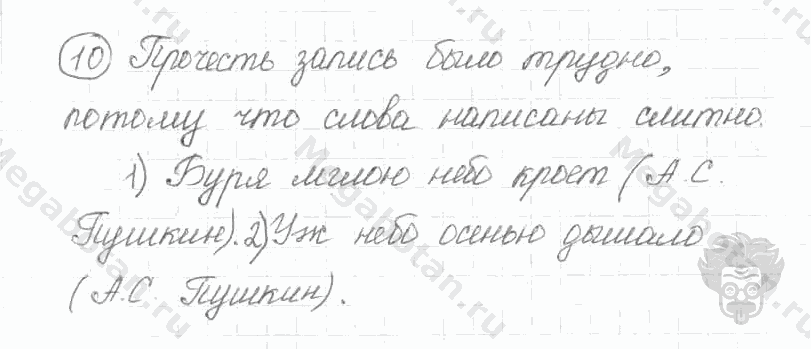 10 Прочесть запись было трудно,
потому что слова написаны слитно.
1) Буря мглою небо кроет (А.С.
Пушкин). 2) Уж небо осенью дышало
(А.С Пушкин).
Megabotan.ru